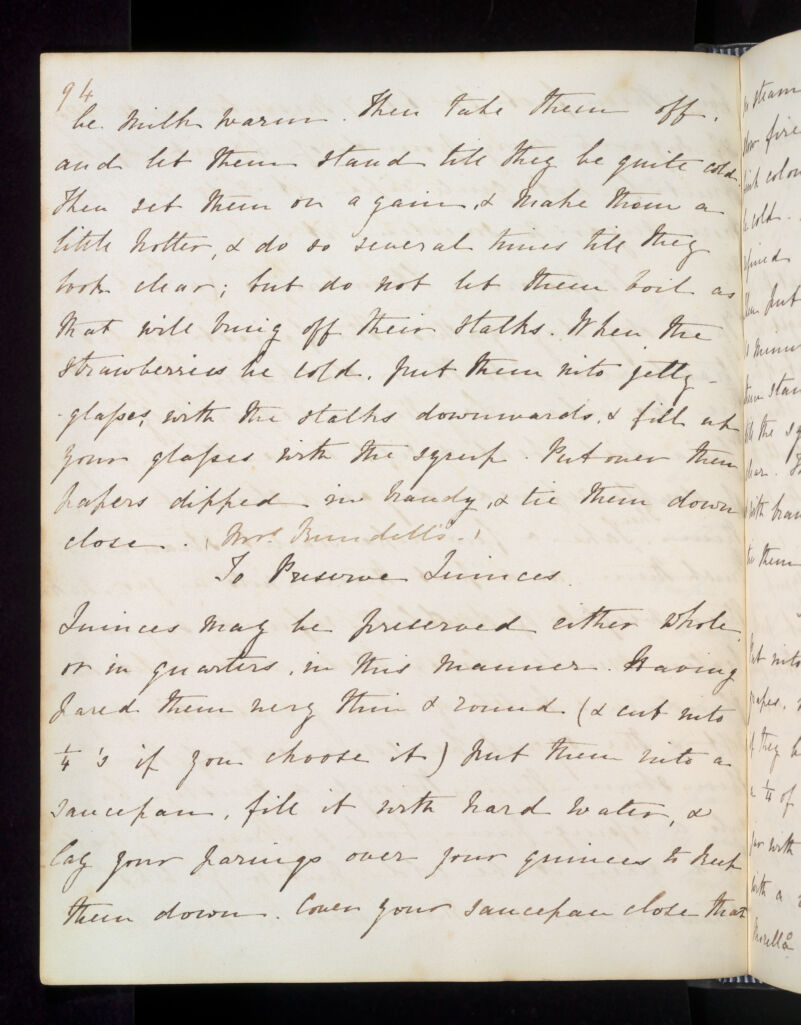 94
be milk warm. Then take them off,
and let them stand till they be quite cold.
Then set them on again, & make them a
little hotter, & do so several times till they
look clear; but do not let them boil as
that will bring off their stalks. When the
strawberries be cold, put them into jelly-
glasses, with the stalks downwards, & fill up
your glasses with the syrup. Put over them
papers dipped in brandy, & tie them down
close. (Mrs Rundell's.)
To Preserve Quinces.
Quinces may be preserved either whole
or in quarters, in this manner. Having
pared them very thin & round (& cut into
1/4's if you choose it) put them into a
saucepan, fill it with hard water, &
lay your parings over your quinces to keep
them down. Cover your saucepan close that
steam
fire
colou
cold.
put
minu
stan
the sy
with bran
them
Put into
grapes,
if they b
a 1/4 of
jar with
with a
Morella